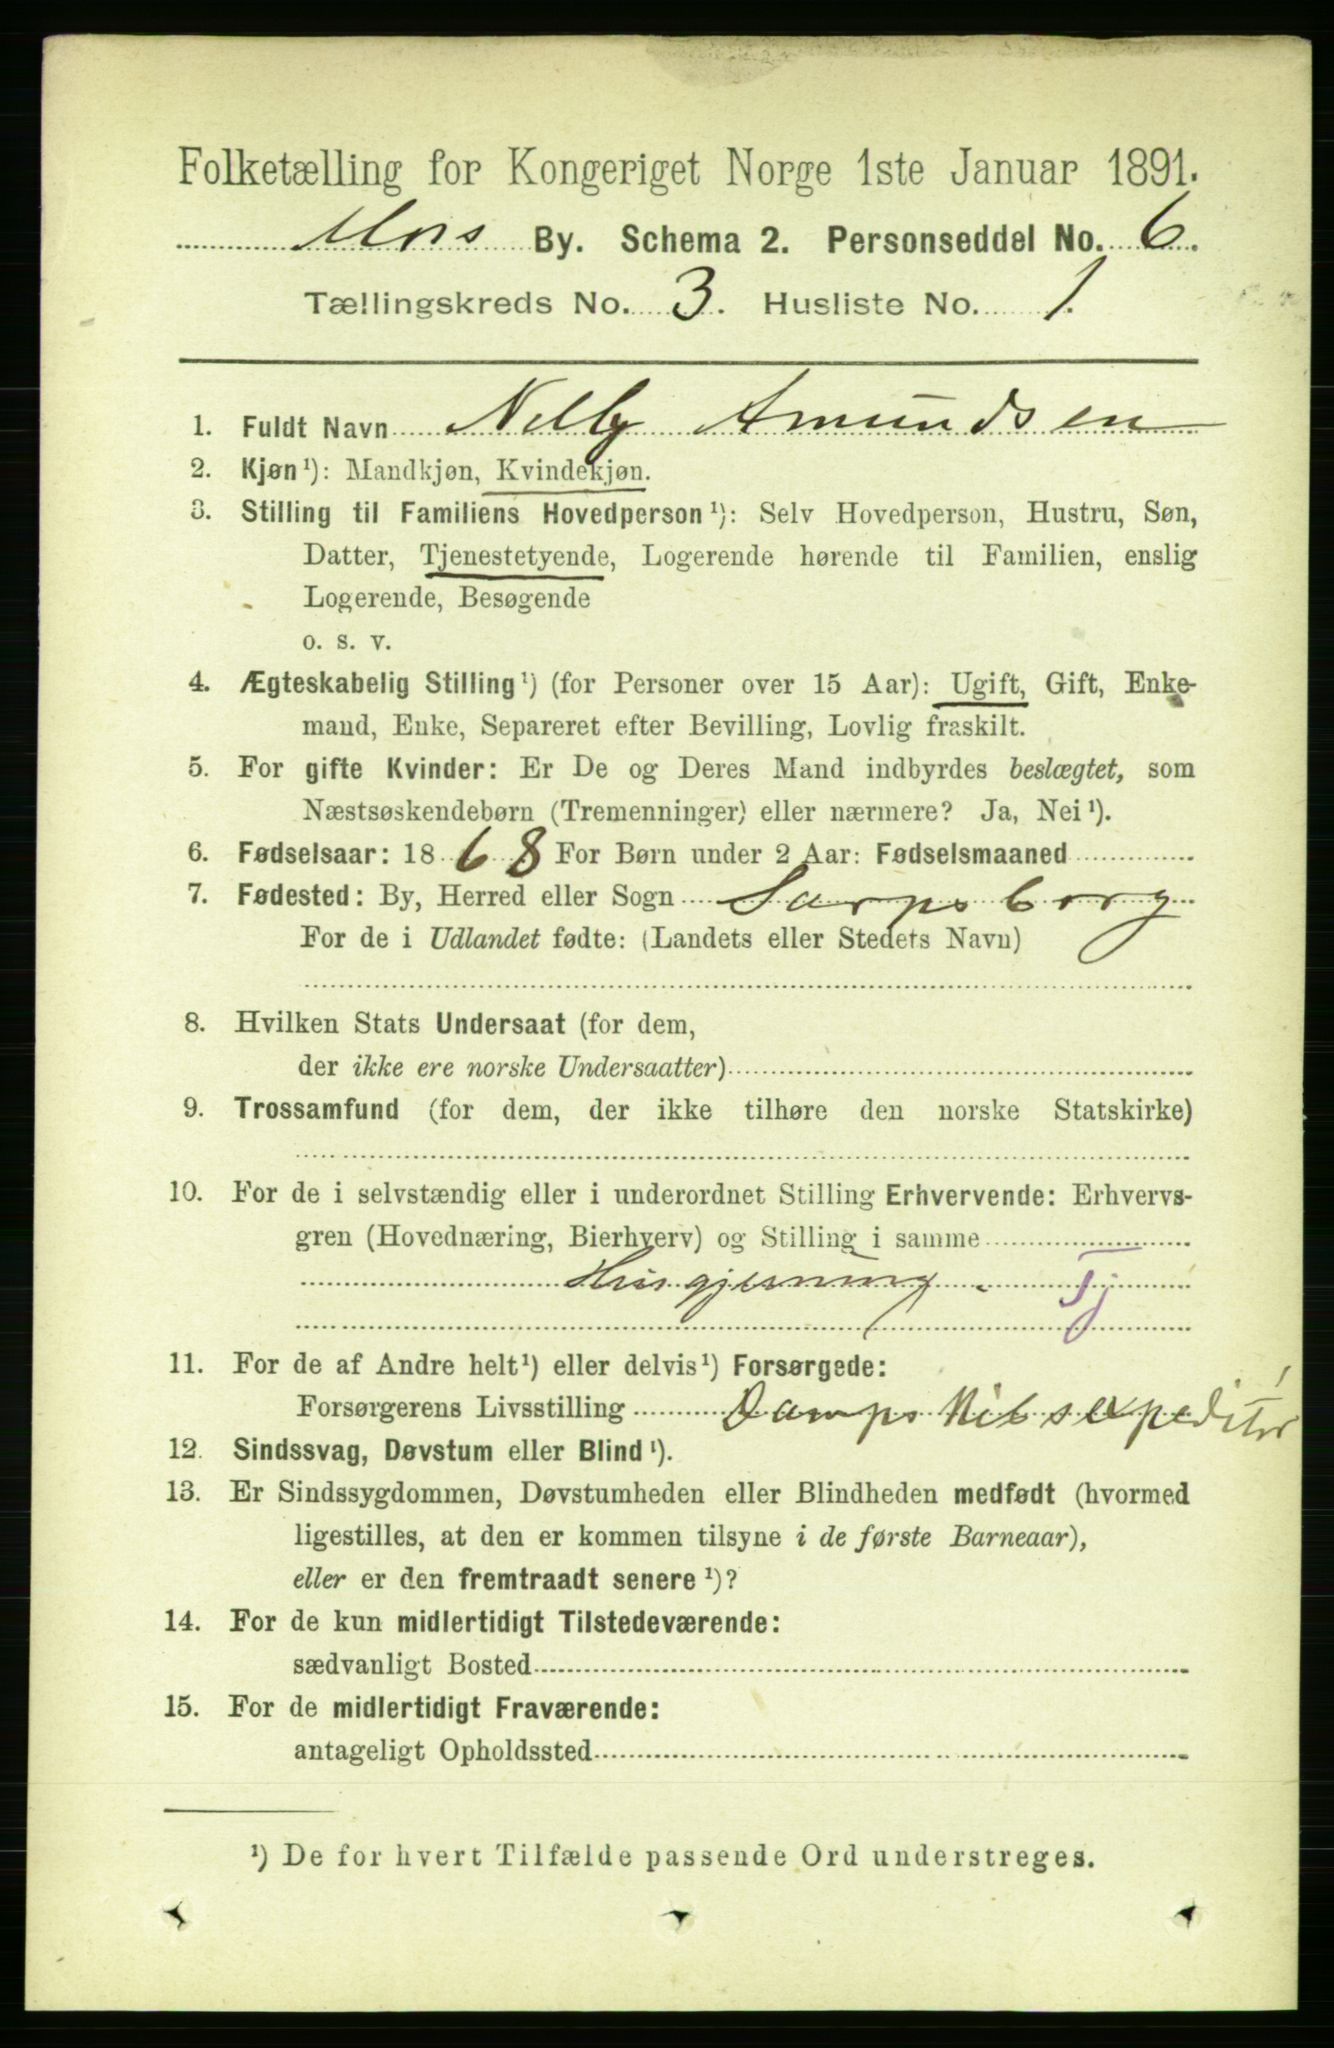 Folketælling for Kongeriget Norge 1ste Januar 1891.
Mos By. Schema 2. Personseddel No. 6.
Tællingskreds No. 3. Husliste No. 1.
1. Fuldt Navn Nelly Amundsen
2. Kjøn ¹): Mandkjøn, Kvindekjøn.
3. Stilling til Familiens Hovedperson ¹): Selv Hovedperson, Hustru, Søn,
Datter, Tjenestetyende, Logerende hørende til Familien, enslig
Logerende, Besøgende
o. s. v.
4. Ægteskabelig Stilling ¹) (for Personer over 15 Aar): Ugift, Gift, Enke-
mand, Enke, Separeret efter Bevilling, Lovlig fraskilt.
5. For gifte Kvinder: Er De og Deres Mand indbyrdes beslægtet, som
Næstsøskendebørn (Tremenninger) eller nærmere? Ja, Nei ¹).
6. Fødselsaar: 1868 For Børn under 2 Aar: Fødselsmaaned
7. Fødested: By, Herred eller Sogn Sarpsborg
For de i Udlandet fødte: (Landets eller Stedets Navn)
8. Hvilken Stats Undersaat (for dem,
der ikke ere norske Undersaatter)
9. Trossamfund (for dem, der ikke tilhøre den norske Statskirke)
10. For de i selvstændig eller i underordnet Stilling Erhvervende: Erhvervs-
gren (Hovednæring, Bierhverv) og Stilling i samme
Husgjerning. Tj
11. For de af Andre helt ¹) eller delvis ¹) Forsørgede:
Forsørgerens Livsstilling Dampskibsexpeditør
12. Sindssvag, Døvstum eller Blind ¹).
13. Er Sindssygdommen, Døvstumheden eller Blindheden medfødt (hvormed
ligestilles, at den er kommen tilsyne i de første Barneaar),
eller er den fremtraadt senere ¹)?
14. For de kun midlertidigt Tilstedeværende:
sædvanligt Bosted
15. For de midlertidigt Fraværende:
antageligt Opholdssted
¹) De for hvert Tilfælde passende Ord understreges.